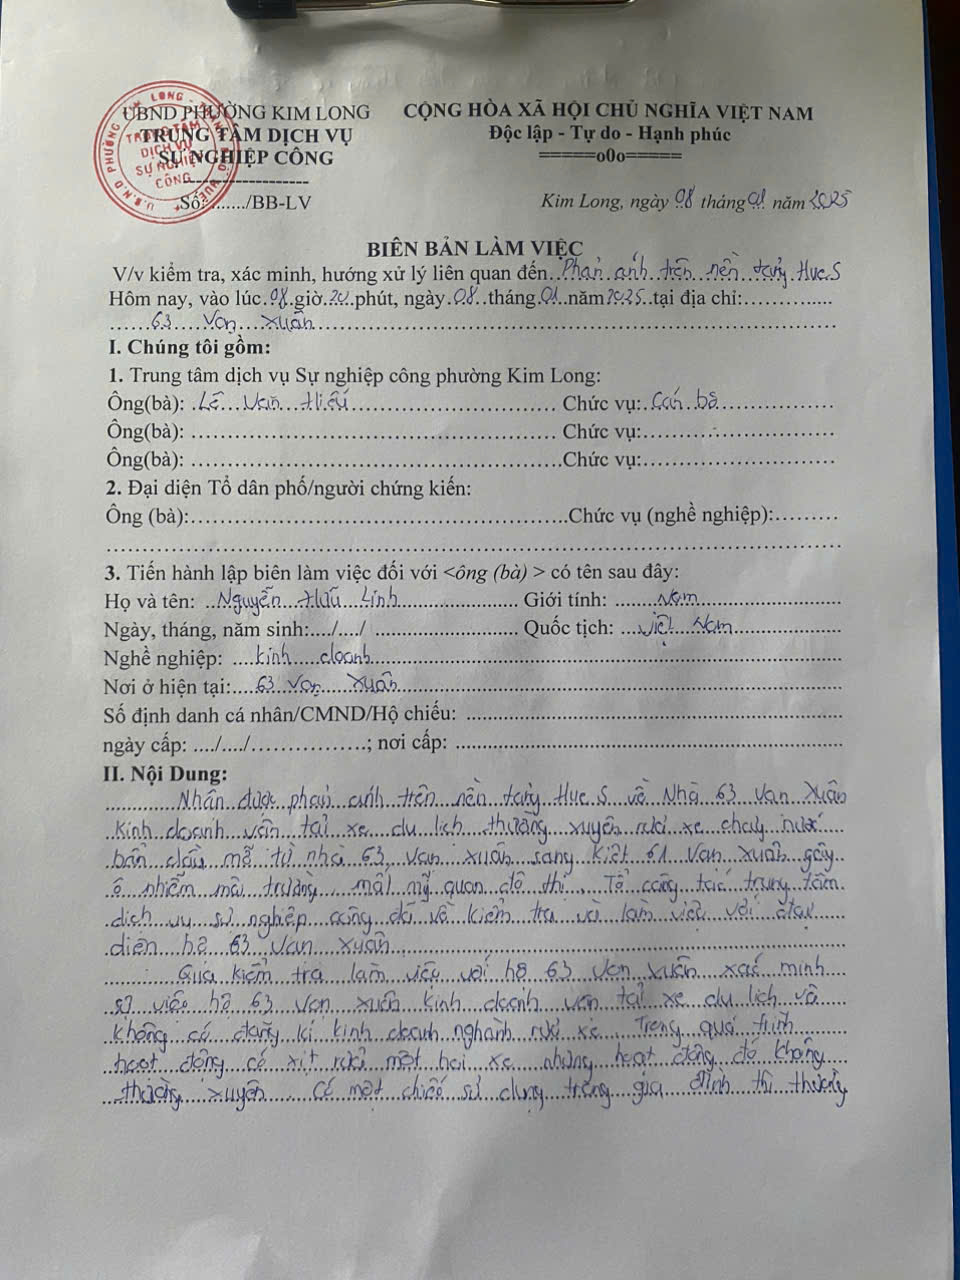 UBND PHƯỜNG KIM LONG
TRUNG TÂM DỊCH VỤ
SỰ NGHIỆP CÔNG
Số:......../BB-LV
CỘNG HÒA XÃ HỘI CHỦ NGHĨA VIỆT NAM
Độc lập - Tự do - Hạnh phúc
=====o0o=====
Kim Long, ngày 08 tháng 01 năm 2025
TRUNG TÂM
DỊCH VỤ
SỰ NGHIỆP
CÔNG
BIÊN BẢN LÀM VIỆC
V/v kiểm tra, xác minh, hướng xử lý liên quan đến Phản ánh trên nền tảng Hue.S
Hôm nay, vào lúc 08 giờ 20 phút, ngày 08 tháng 01 năm 2025 tại địa chỉ:
63 Vạn Xuân
I. Chúng tôi gồm:
1. Trung tâm dịch vụ Sự nghiệp công phường Kim Long:
Ông(bà): Lê Văn Hiếu Chức vụ: Cán bộ
Ông(bà): Chức vụ:
Ông(bà): Chức vụ:
2. Đại diện Tổ dân phố/người chứng kiến:
Ông (bà): Chức vụ (nghề nghiệp):
3. Tiến hành lập biên làm việc đối với <ông (bà) > có tên sau đây:
Họ và tên: Nguyễn Hữu Linh Giới tính: Nam
Ngày, tháng, năm sinh:..../..../ Quốc tịch: Việt Nam
Nghề nghiệp: kinh doanh
Nơi ở hiện tại: 63 Vạn Xuân
Số định danh cá nhân/CMND/Hộ chiếu:
ngày cấp: ..../..../ ; nơi cấp:
II. Nội Dung:
Nhận được phản ánh trên nền tảng Hue.S về Nhà 63 Vạn Xuân
kinh doanh vận tải xe du lịch thường xuyên rửa xe chảy nước
bẩn dầu mỡ từ nhà 63 Vạn Xuân sang kiệt 61 Vạn Xuân gây
ô nhiễm môi trường, mất mỹ quan đô thị. Tổ công tác trung tâm
dịch vụ sự nghiệp công đã về kiểm tra và làm việc với đại
diện hộ 63 Vạn Xuân
Qua kiểm tra làm việc với hộ 63 Vạn Xuân xác minh
sự việc hộ 63 Vạn Xuân kinh doanh vận tải xe du lịch và
không có đăng kí kinh doanh nghành rửa xe. Trong quá trình
hoạt động có xịt rửa một hai xe nhưng hoạt động đó không
thường xuyên. Có một chiếc sử dụng trong gia đình thì thường